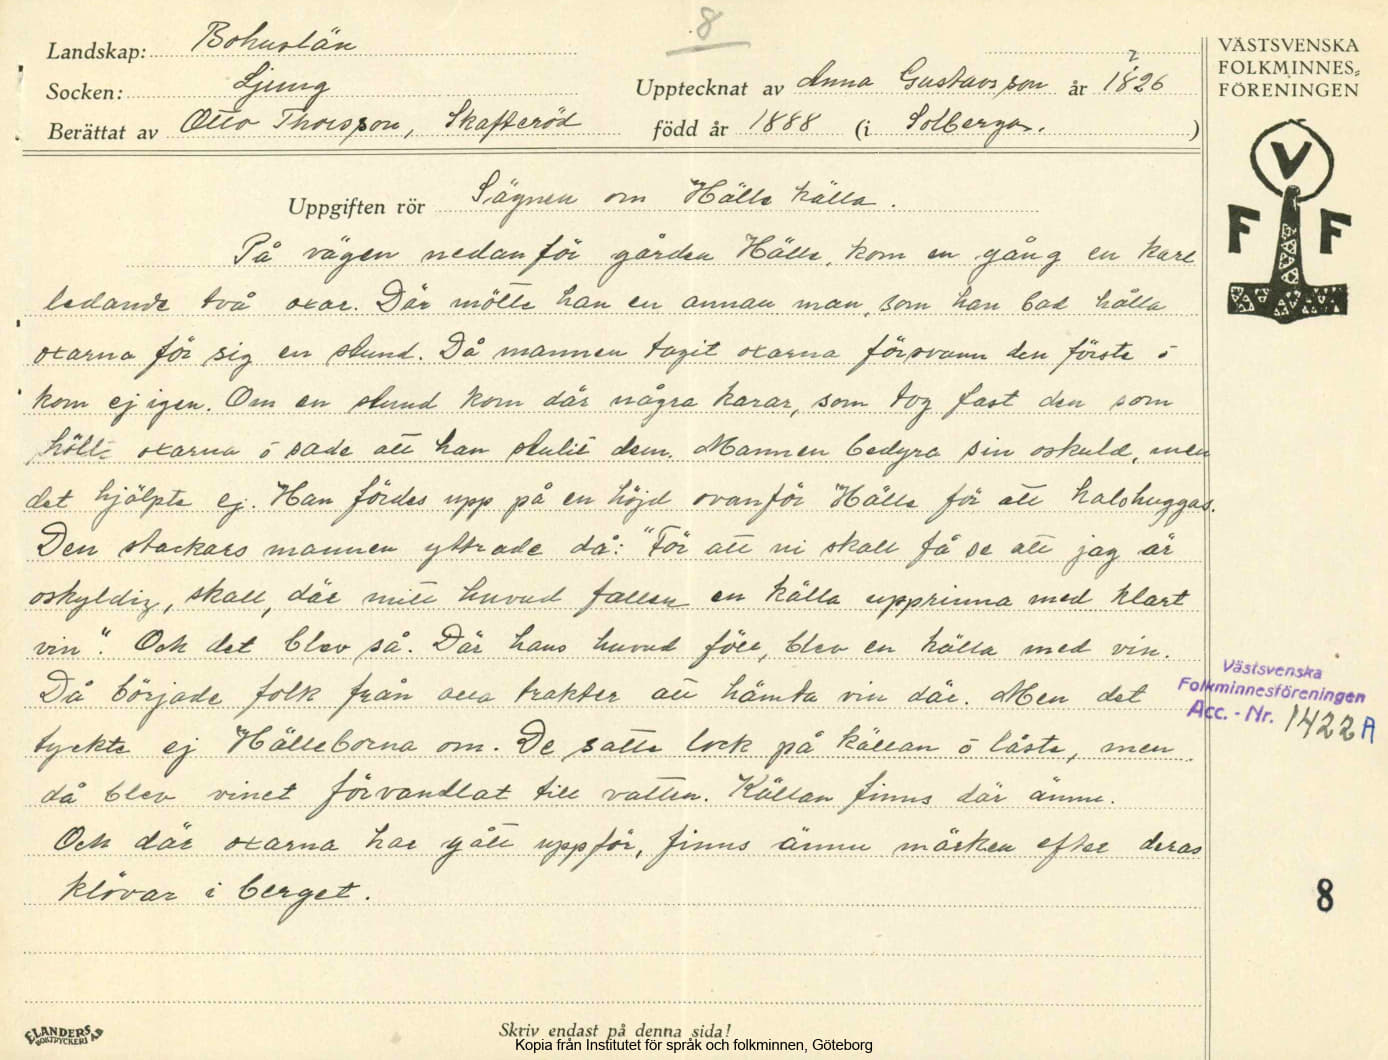 8
Landskap: Bohuslän
Socken: Ljung
Upptecknat av Anna Gustavsson år 1826
?
Berättat av Otto Thorsson, Skafteröd född år 1888 (i Solberga. )
VÄSTSVENSKA
FOLKMINNES=
FÖRENINGEN
V
F F
Uppgiften rör Sägnen om Hälle källa .
På vägen nedanför gården Hälle, kom en gång en karl
ledande två oxar. Där mötte han en annan man, som han bad hålla
oxarna för sig en stund. Då mannen tagit oxarna försvann den förste ö
kom ej igen. Om en stund kom där några karar, som tog fast den som
höllt oxarna ö sade att han stulit dem. Mannen bedyra sin oskuld, men
det hjälpte ej. Han fördes upp på en höjd ovanför Hälle för att halshuggas.
Den stackars mannen yttrade då: "För att ni skall få se att jag är
oskyldig, skall, där mitt huvud faller en källa upprinna med klart
vin". Och det blev så. Där hans huvud föll, blev en källa med vin.
Då började folk från alla trakter att hämta vin där. Men det
tyckte ej Hälleborna om. De satte lock på källan ö låste, men
då blev vinet förvandlat till vatten. Källan finns där ännu.
Och där oxarna har gått uppför, finns ännu märken efter deras
klövar i berget.
Västsvenska
Folkminnesföreningen
Acc. - Nr. 1422 A
8
ELANDERS
BOKTRYCKERI AB
Skriv endast på denna sida!
Kopia från Institutet för språk och folkminnen, Göteborg